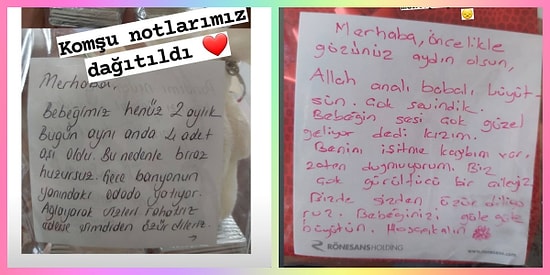 Komşu notlarımız
dağıtıldı ❤️
Merhaba,
Bebeğimiz henüz 2 aylık
Bugün aynı anda 4 adet
aşı oldu. Bu nedenle biraz
huzursuz. Gece banyonun
yanındaki odada yatıyor.
Ağlayarak sizleri rahatsız
ederse şimdiden özür dileriz.
Merhaba, öncelikle
gözünüz aydın olsun,
Allah analı babalı büyüt-
sün. Çok sevindik.
Bebeğin sesi çok güzel
geliyor dedi kızım.
Benim işitme kaybım var,
zaten duymuyorum. Biz
çok gürültücü bir aileyiz
Bizde sizden özür diliyo
ruz. Bebeğinizi güle güle
büyütün. Hoşçakalın
RÖNESANS HOLDING